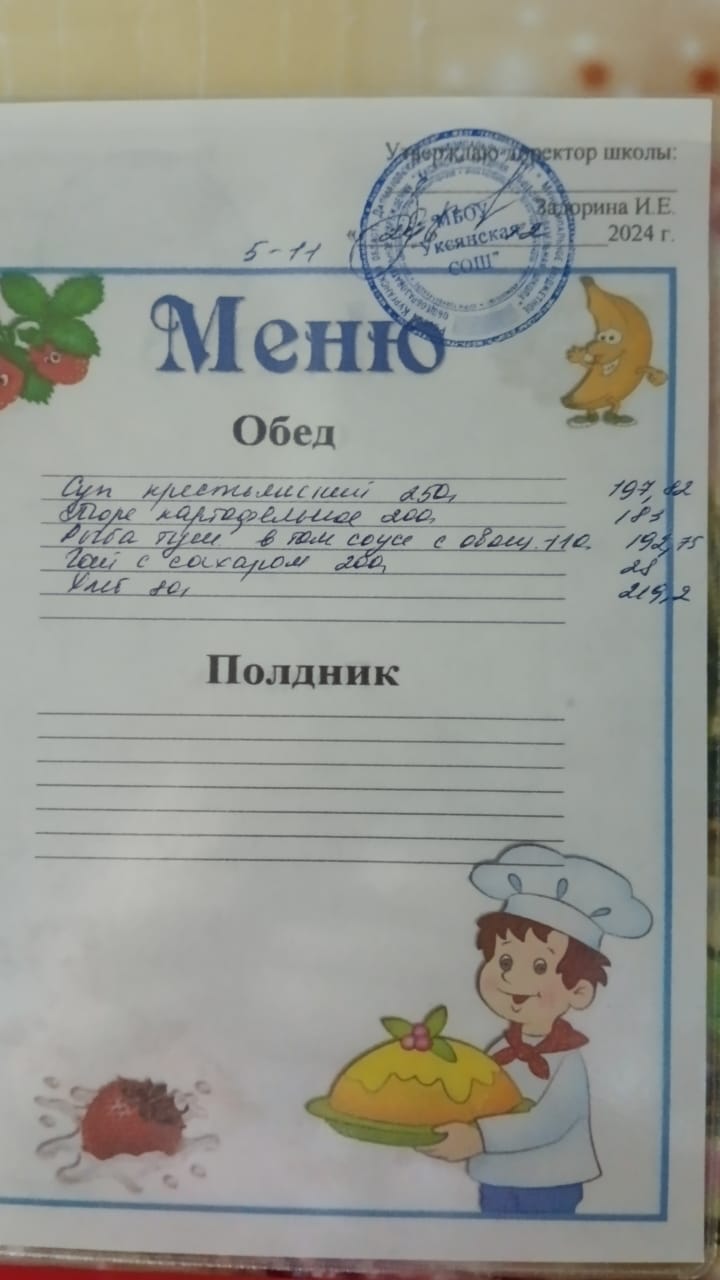 Утверждаю директор школы:
Задорина И.Е.
« 24 » 12 2024 г.
МБОУ
"Уксянская
СОШ"
5-11
Меню
Обед
Суп крестьянский 250, 197,82
Пюре картофельное 200, 183
Рыба туш в том соусе с овощ. 110. 192,75
Чай с сахаром 200, 28
Хлеб 80, 219,2
Полдник